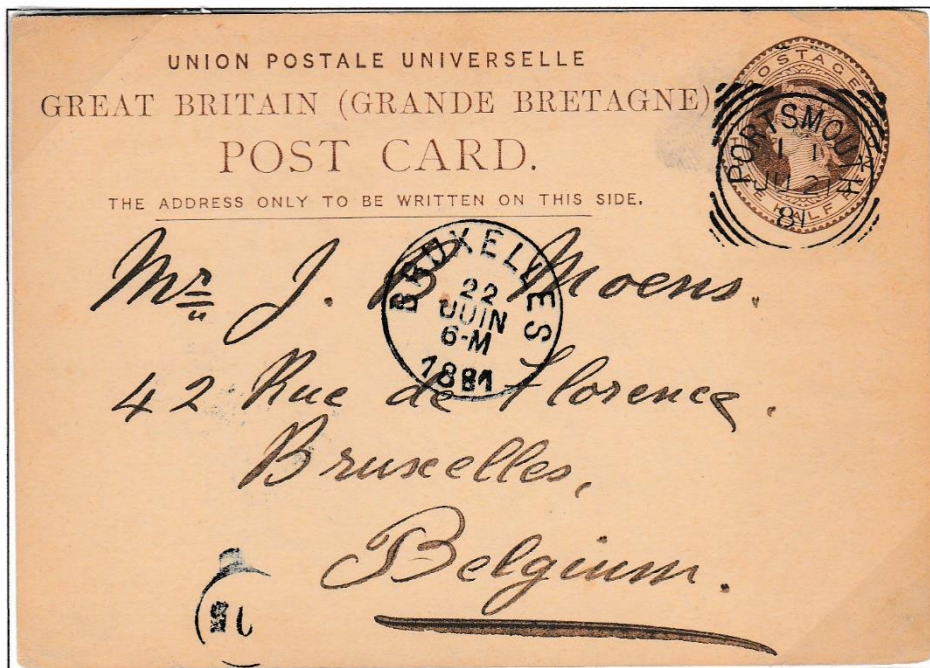 UNION POSTALE UNIVERSELLE
GREAT BRITAIN (GRANDE BRETAGNE)
POST CARD.
THE ADDRESS ONLY TO BE WRITTEN ON THIS SIDE.
POSTAGE
HALF
PORTSMOUTH
JU 21
81
Mr J. B Moens.
BRUXELLES
22
JUIN
6-M
1881
42 Rue de Florence.
Bruxelles,
Belgium.